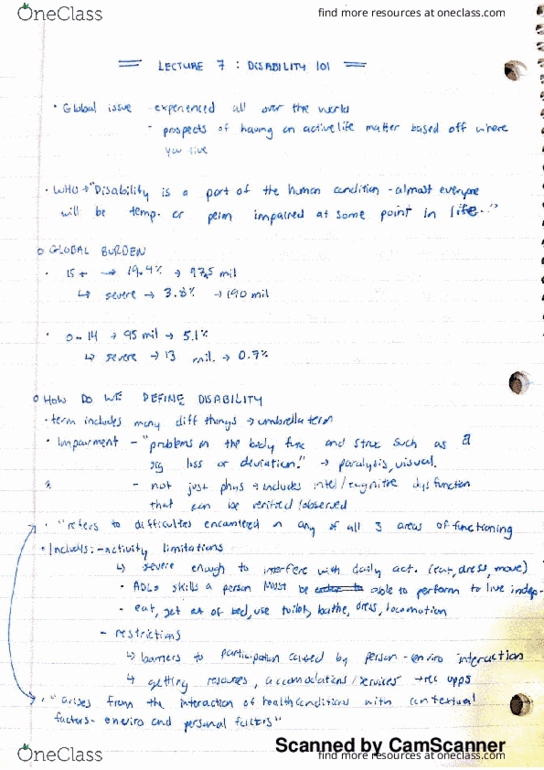 OneClass
find more resources at oneclass.com
LECTURE 7 : DISABILITY 101
• Global issue - experienced all over the world
- prospects of having an active life matter based off where
you live
• WHO → "Disability is a part of the human condition - almost everyone
will be temp. or perm impaired at some point in life."
o GLOBAL BURDEN
• 15+ → 19.4% → 975 mil
↳ severe → 3.8% → 190 mil
• 0-14 → 95 mil → 5.1%
↳ severe → 13 mil. → 0.7%
o HOW DO WE DEFINE DISABILITY
• term includes many diff things → umbrella term
• Impairment - "problems in the body func and struc such as a
sig loss or deviation." → paralysis, visual.
- not just phys → includes intel/cognitive dysfunction
that can be verified/observed
• "refers to difficulties encountered in any of all 3 areas of functioning
• Includes: - activity limitations
↳ severe enough to interfere with daily act. (eat, dress, move)
• ADLs skills a person MUST be able to perform to live indep.
- eat, get out of bed, use toilet, bathe, dress, locomotion
- restrictions
↳ barriers to participation caused by person - enviro interaction
↳ getting resources, accomodations/services → rec opps
• "arises from the interaction of health conditions with contextual
factors - enviro and personal factors"
Scanned by CamScanner
OneClass
find more resources at oneclass.com